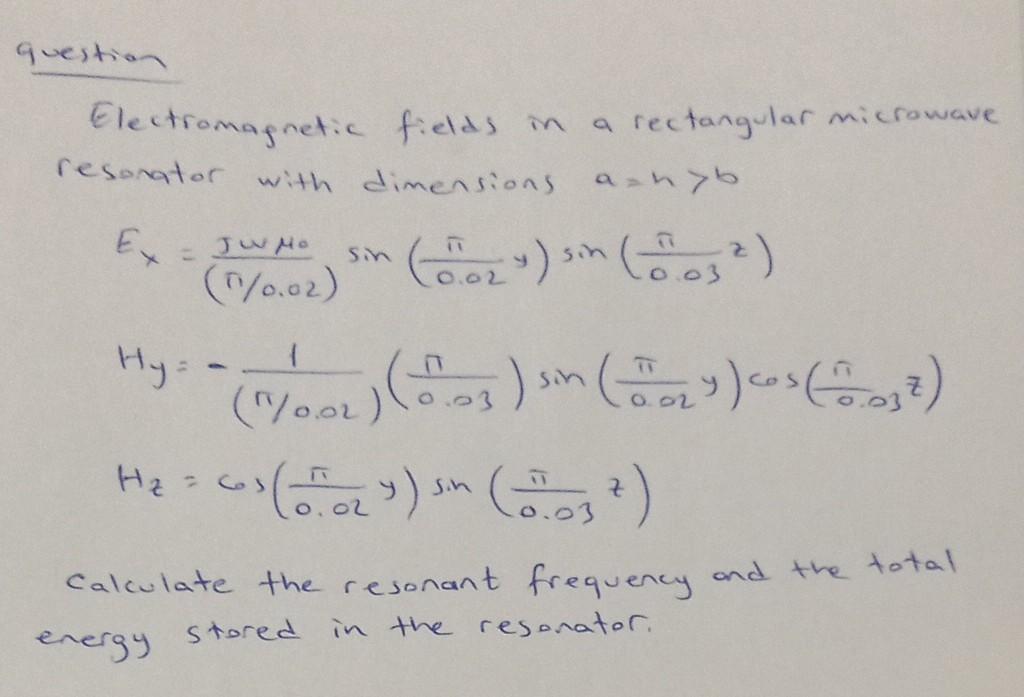 question
Electromagnetic fields in a rectangular microwave
resonator with dimensions a=h>b
Ex = JWμ0/(π/0.02) sin(π/0.02 y) sin(π/0.03 z)
Hy = - 1/(π/0.02) (π/0.03) sin(π/0.02 y) cos(π/0.03 z)
Hz = cos(π/0.02 y) sin(π/0.03 z)
Calculate the resonant frequency and the total
energy stored in the resonator.